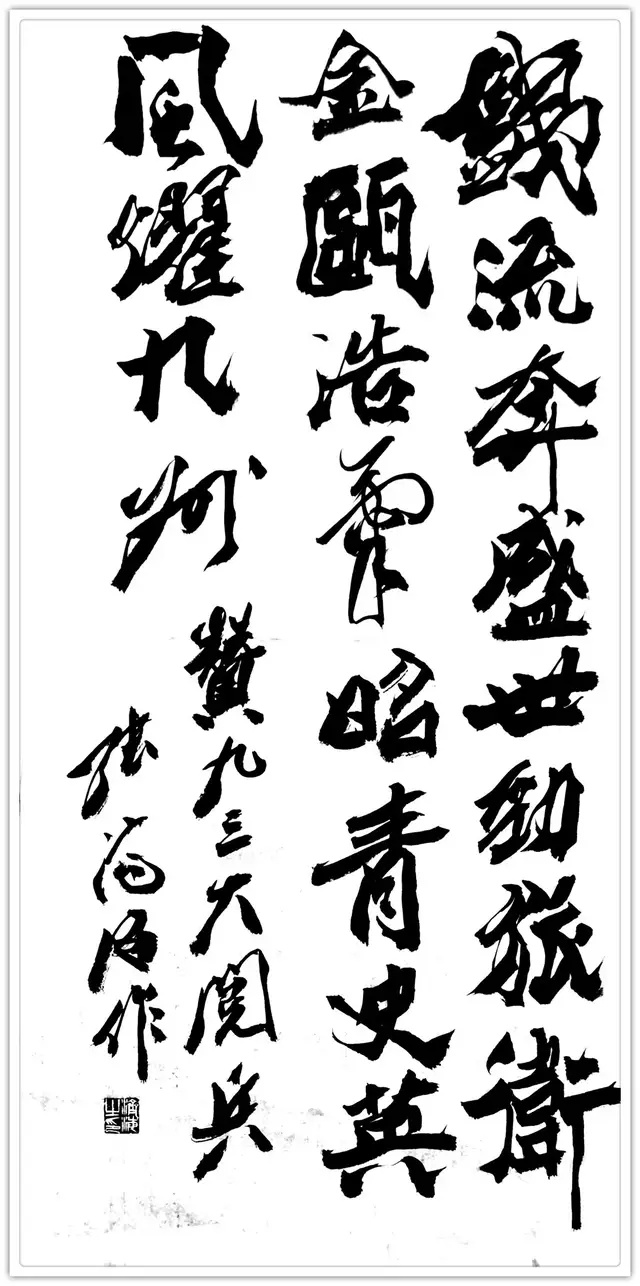 鐵流奔盛世勁旅衛
金甌浩氣昭青史英
風耀九州
贊九三大閱兵
張海作